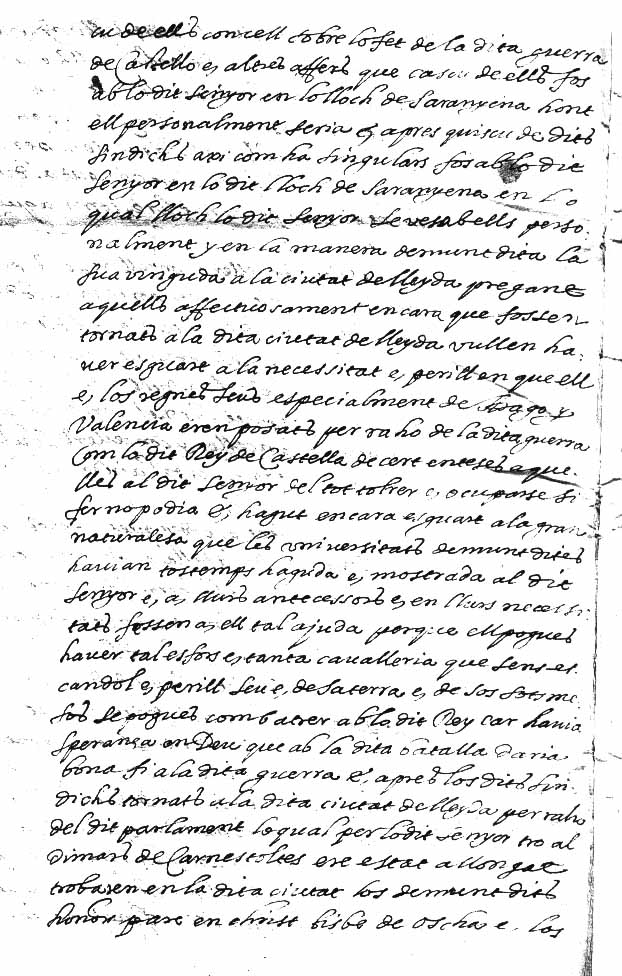 cu de ells consell sobre lo fet de la dita guerra
de Castello e, altres affers que cascu de ells fos
ab lo dit senyor en lo lloch de Saranyena hont
ell personalment seria e, apres quiscu de dits
sindichs axi com ha singulars fos ab lo dit
senyor en lo dit lloch de Saranyena en lo
qual lloch lo dit senyor se vesabells perso
nalment y en la manera demunt dita la
sua vinguda a la ciutat de lleyda pregant
aquells affectuosament encara que fossen
tornats a la dita ciutat de lleyda vullen ha
ver esguart a la necessitat e, perill en que ell
e, los regnes seus especialment de Arago y
Valencia eren posats per raho de la dita guerra
Com la dit Rey de Castella de cert enteses aque
lles al dit senyor del tot tobrer e, ocuparse si
fer no podia e, hagut encara esguart a la gran
naturalesa que les universitats demunt dites
havian tostemps haguda e, mostrada al dit
senyor e, a, llurs antecessors e, en llurs necessi
tats fossen a, ell tal ajuda perque ell pogues
haver tal esfors e, tanta cavalleria que sens es
candol e, perill seu e, de sa terra e, de sos sotsme
sos se pogues combatrer ab lo dit Rey car havia
sperança en Deu que ab la dita batalla daria
bona fi a la dita guerra e, apres los dits sin
dichs tornats a la dita ciutat de lleyda per raho
del dit parlament lo qual per lo dit senyor tro al
dimars de Carnestoltes ere estat allongat
trobaren en la dita ciutat los demunt dits
honor pare en christ bisbe de Oscha e, los